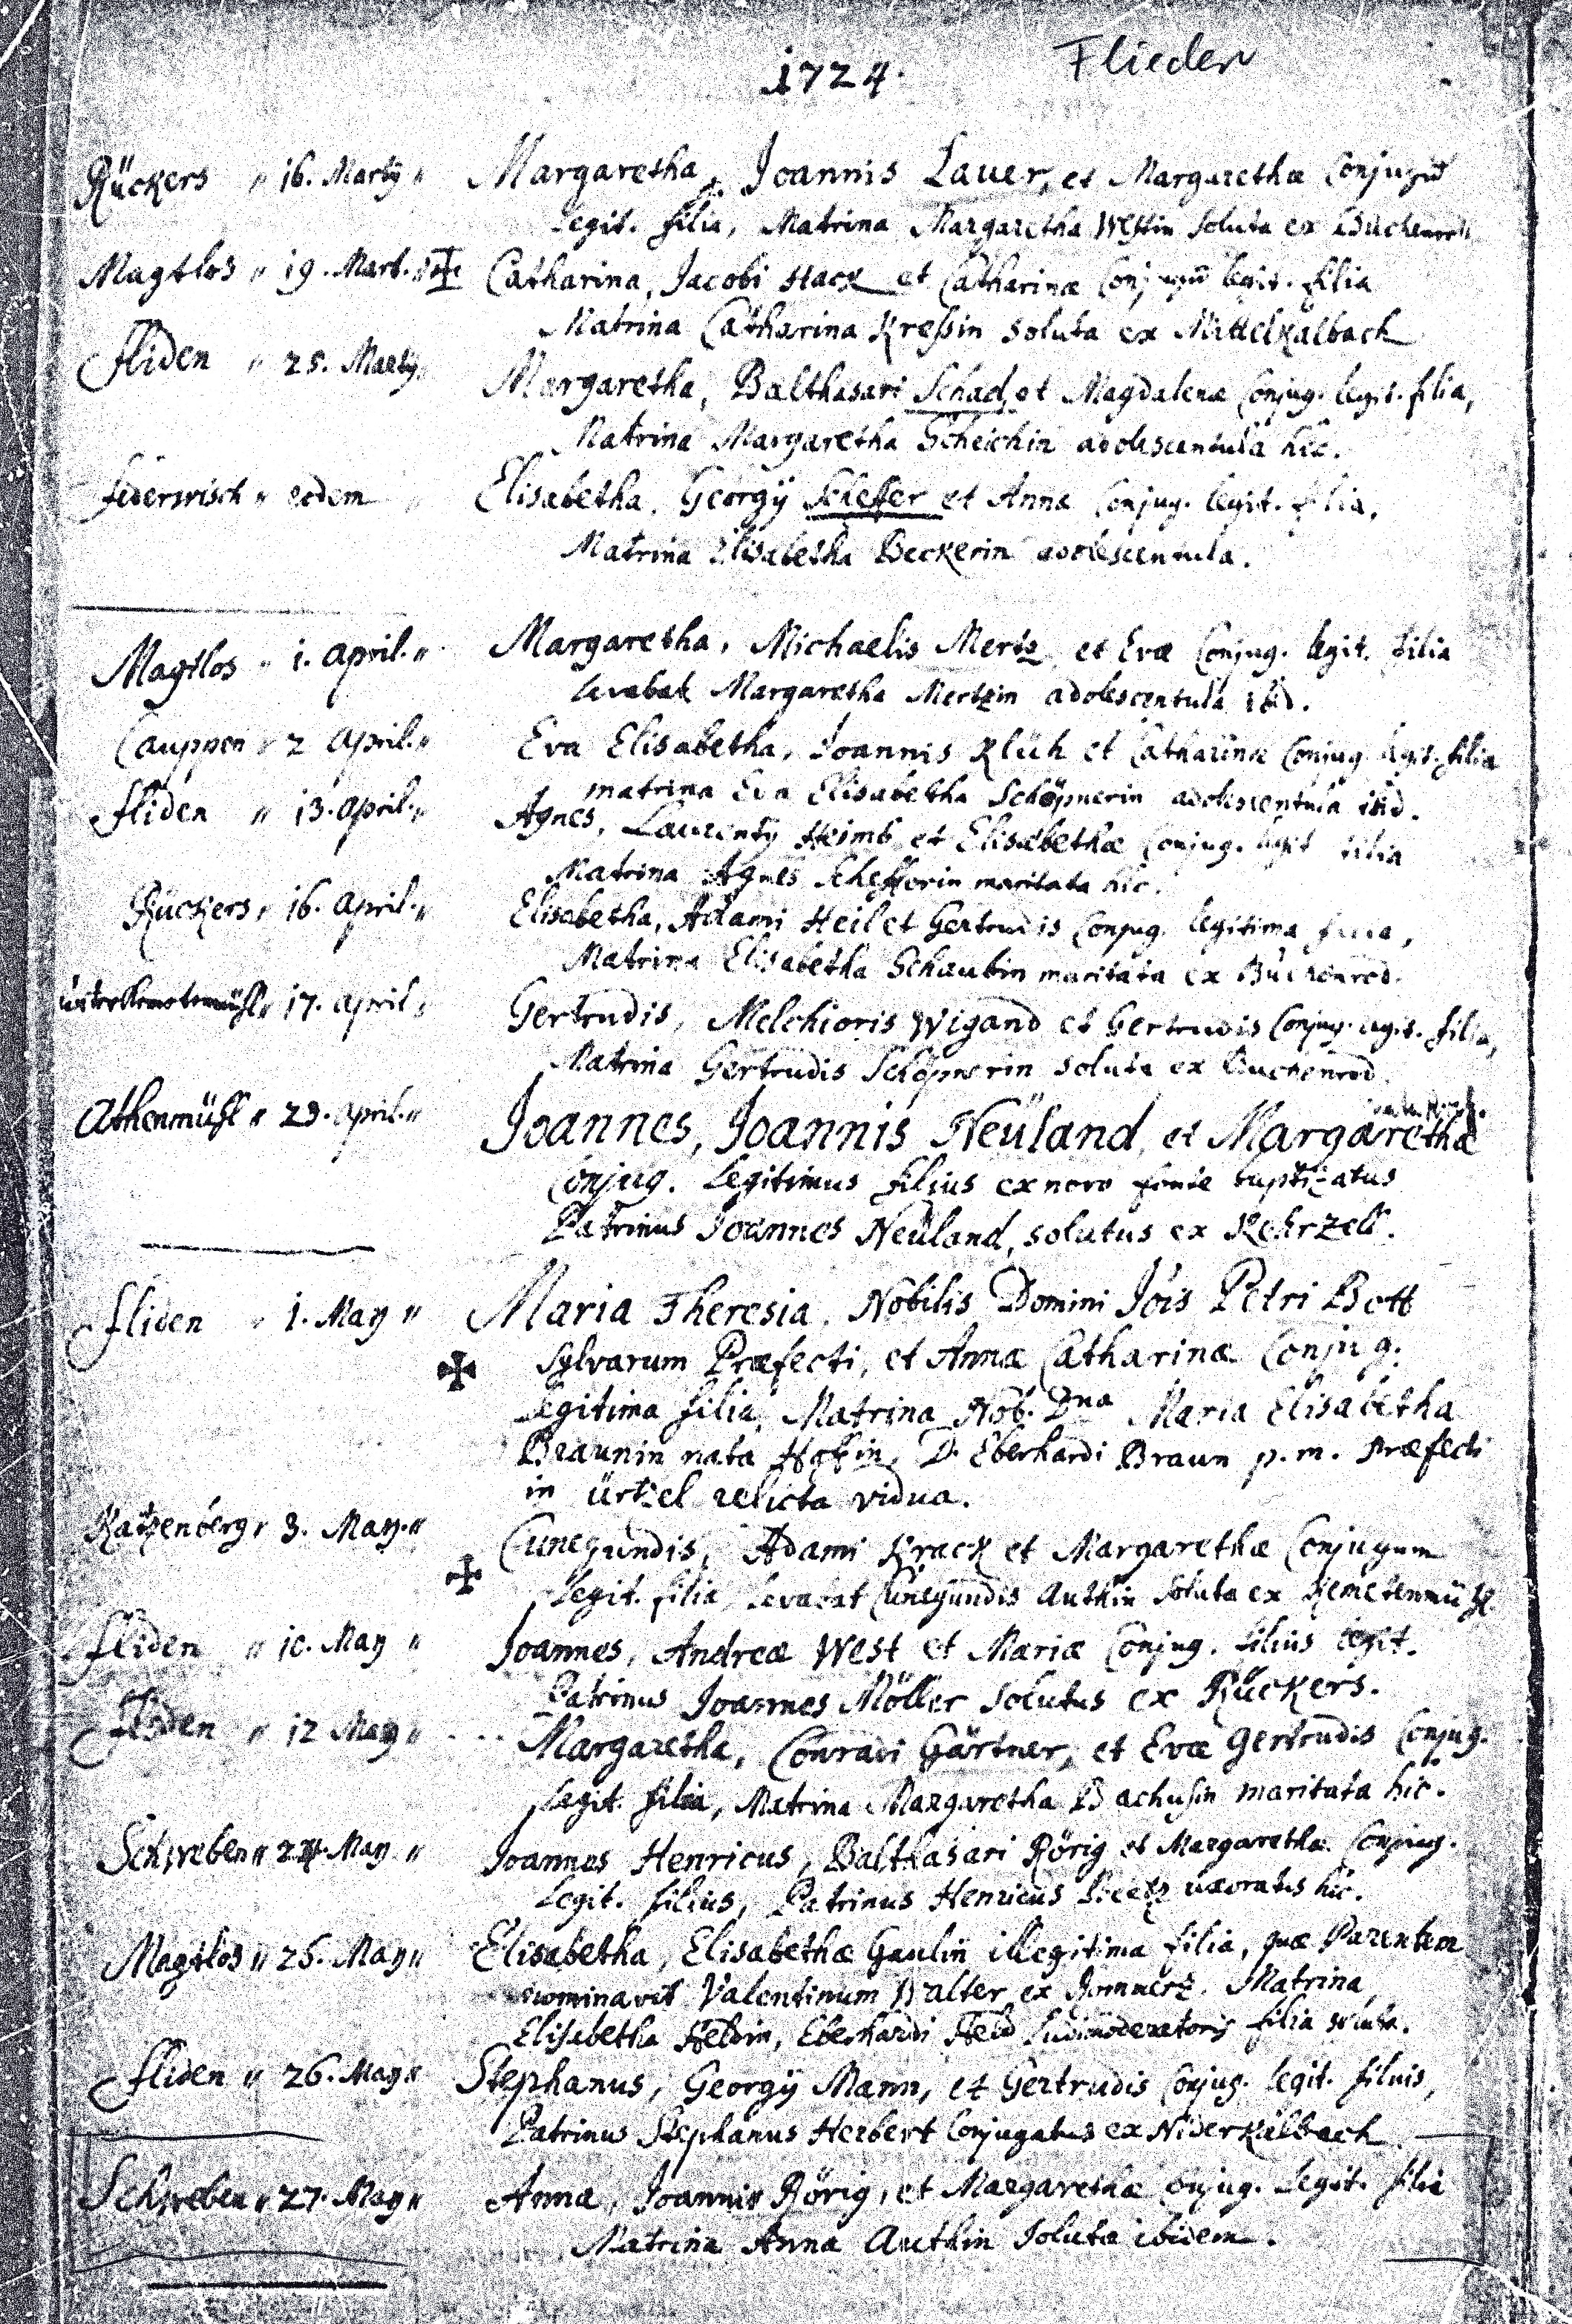 1724.
Flieden
Rückers " 16. Martÿ " Margaretha, Joannis Lauer, et Margarethæ Conjugū
legit. filia, Matrina Margaretha Westin soluta ex Buchenrodt
Magtlos " 19. Mart. " Catharina, Jacobi Hack et Catharinæ Conjugū legit. filia
Matrina Catharina Kreßin soluta ex Mittelkalbach
Fliden " 25. Martÿ " Margaretha, Balthasari Schad, et Magdalenæ Conjug. legit. filia,
Matrina Margaretha Scheichin adolescentula hic.
federwisch " eodem " Elisabetha, Georgÿ Scheffer et Annæ Conjug. legit. filia,
Matrina Elisabetha Beckerin adolescentula.
Magtlos " 1. April. " Margaretha, Michaelis Mertz et Evæ Conjug. legit. filia
levabat Margaretha Mertzin adolescentula ibid.
Cauppen " 2 April. " Eva Elisabetha, Joannis Klüh et Catharinæ Conjug. legit. filia
matrina Eva Elisabetha Schöpnerin adolescentula ibid.
Fliden " 13. April. " Agnes, Laurentÿ Heimb et Elisabethæ Conjug. legit filia
Matrina Agnes Schefferin maritata hic.
Rückers " 16. April. " Elisabetha, Adami Heil et Gertrudis Conjug. legitima filia,
Matrina Elisabetha Schaubin maritata ex Buchenrod.
17. April " Gertrudis, Melchioris Wigand et Gertrudis Conjug. legit. filia,
Matrina Gertrudis Schöpnerin soluta ex Buchenrod.
Athenmühl " 23. April. " Joannes, Joannis Neüland, et Margarethæ
Conjug. Legitimus filius ex novo fonte baptizatus
Patrinus Joannes Neüland, solutus ex Kehrzell.
Fliden " 1. May " Maria Theresia, Nobilis Domini Jōis Petri Bott
Sylvarum Præfecti, et Annæ Catharinæ Conjug.
Legitima filia, Matrina Nob. Dna Maria Elisabetha
Braunin nata D. Eberhardi Braun p. m. Præfecti
in ürtzel relicta vidua.
Katzenberg " 3. May. " Cunegundis, Adami Krack et Margarethæ Conjugum
legit. filia, levabat Cunegundis Authin soluta ex Kemetenmühl.
Fliden " 10. May " Joannes, Andreæ West et Mariæ Conjug. filius legit.
Patrinus Joannes Möller solutus ex Rückers.
Fliden " 12 May " Margaretha, Conradi Gärtner, et Evæ Gertrudis Conjug.
legit. filia, Matrina Margaretha Bachußin maritata hic.
Schweben " 24. May " Joannes Henricus, Balthasari Rörig et Margarethæ Conjug.
Legit. filius, Patrinus Henricus uxoratus hic.
Magtlos " 25. May " Elisabetha, Elisabethæ Gaulin illegitima filia, quæ Parentem
nominavit Valentinum Walter ex Rommerz. Matrina
Elisabetha Heldin, Eberhardi Held Ludimoderatoris filia soluta.
Fliden " 26. May " Stephanus, Georgÿ Mann, et Gertrudis Conjug. legit. filius,
Patrinus Stephanus Herbert Conjugatus ex Niderkalbach
Schweben " 27. May " Anna, Joannis Rörig, et Margarethæ Conjug. Legit. filia
Matrina Anna Authin Soluta ibidem.